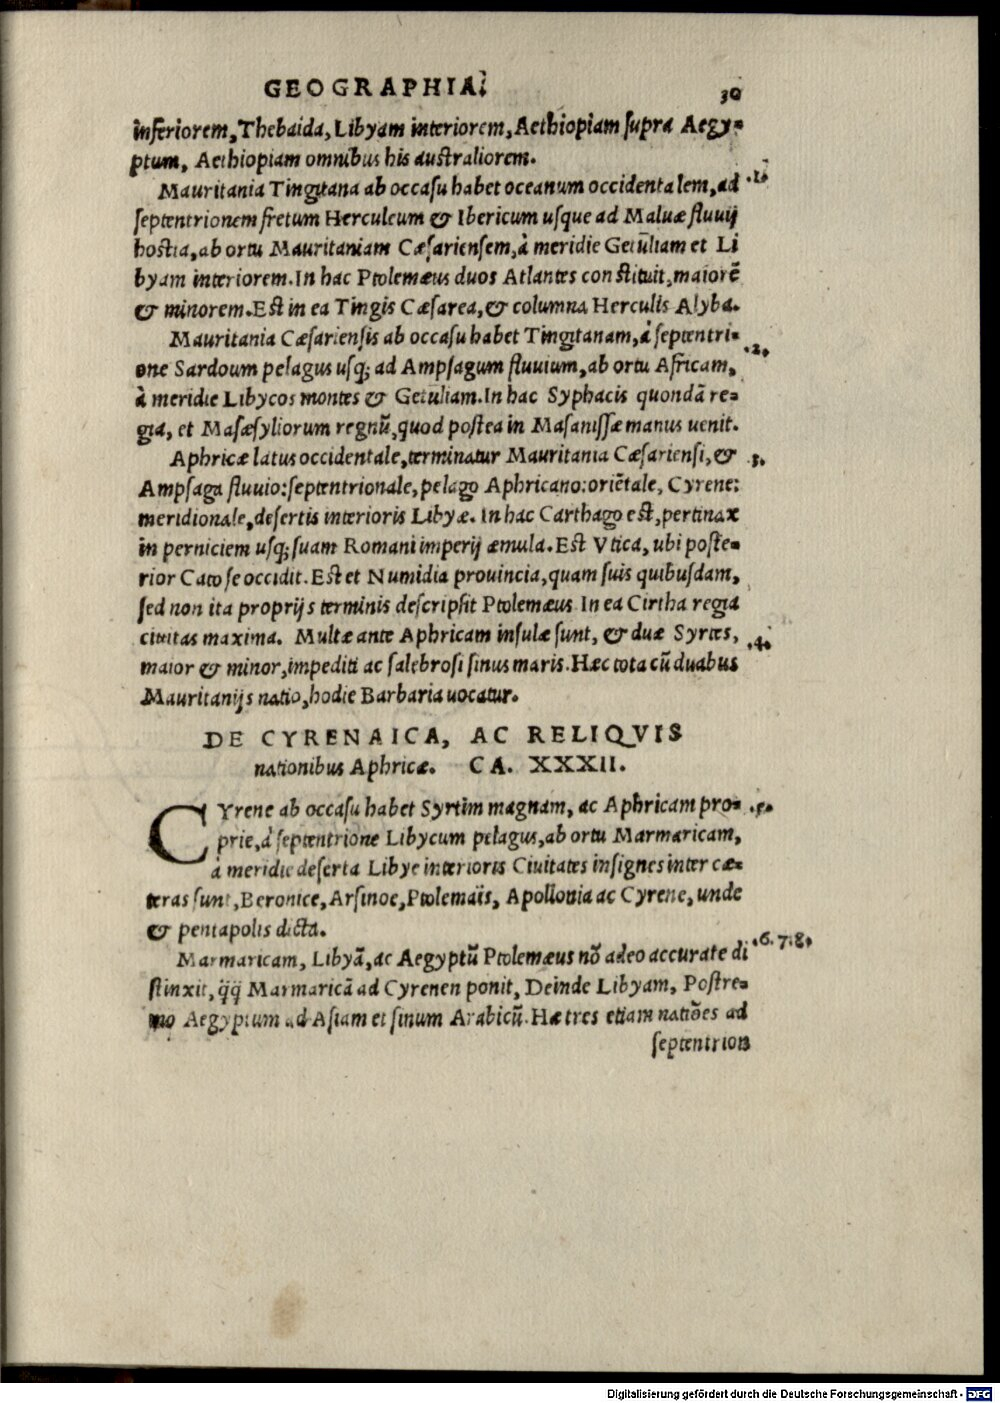 GEOGRAPHIA. 30
inferiorem, Thebaida, Libyam interiorem, Aethiopiam supra Aegy-
ptum, Aethiopiam omnibus his australiorem.
Mauritania Tingitana ab occasu habet oceanum occidentalem, ad .1.
septentrionem fretum Herculeum & Ibericum usque ad Maluæ fluuij
hostia, ab ortu Mauritaniam Cæsariensem, à meridie Getuliam et Li
byam interiorem. In hac Ptolemæus duos Atlantes constituit, maiorẽ
& minorem. Est in ea Tingis Cæsarea, & columna Herculis Alyba.
Mauritania Cæsariensis ab occasu habet Tingitanam, à septentri- .2.
one Sardoum pelagus usq; ad Ampsagum fluuium, ab ortu Africam,
à meridie Libycos montes & Getuliam. In hac Syphacis quondã re-
gia, et Masæsyliorum regnũ, quod postea in Masanissæ manus uenit.
Aphricæ latus occidentale, terminatur Mauritania Cæsariensi, & .3.
Ampsaga fluuio: septentrionale, pelago Aphricano: oriẽtale, Cyrene:
meridionale, desertis interioris Libyæ. In hac Carthago est, pertinax
in perniciem usq; suam Romani imperij æmula. Est Vtica, ubi poste-
rior Cato se occidit. Est et Numidia prouincia, quam suis quibusdam,
sed non ita proprijs terminis descripsit Ptolemæus In ea Cirtha regia
ciuitas maxima. Multæ ante Aphricam insulæ sunt, & duæ Syrtes, .4.
maior & minor, impediti ac salebrosi sinus maris. Hæc tota cũ duabus
Mauritanijs natio, hodie Barbaria uocatur.
DE CYRENAICA, AC RELIQVIS
nationibus Aphricæ. CA. XXXII.
CYrene ab occasu habet Syrtim magnam, ac Aphricam pro- .5.
prie, à septentrione Libycum pelagus, ab ortu Marmaricam,
à meridie deserta Libye interioris Ciuitates insignes inter cæ-
teras sunt, Beronice, Arsinoe, Ptolemaïs, Apollonia ac Cyrene, unde
& pentapolis dicta.
Marmaricam, Libyã, ac Aegyptũ Ptolemæus nõ adeo accurate di .6.7.8.
stinxit, q̃q̃ Marmaricã ad Cyrenen ponit, Deinde Libyam, Postre-
mo Aegyptum ad Asiam et sinum Arabicũ. Hæ tres etiam natiões ad
septentrion
Digitalisierung gefördert durch die Deutsche Forschungsgemeinschaft - DFG